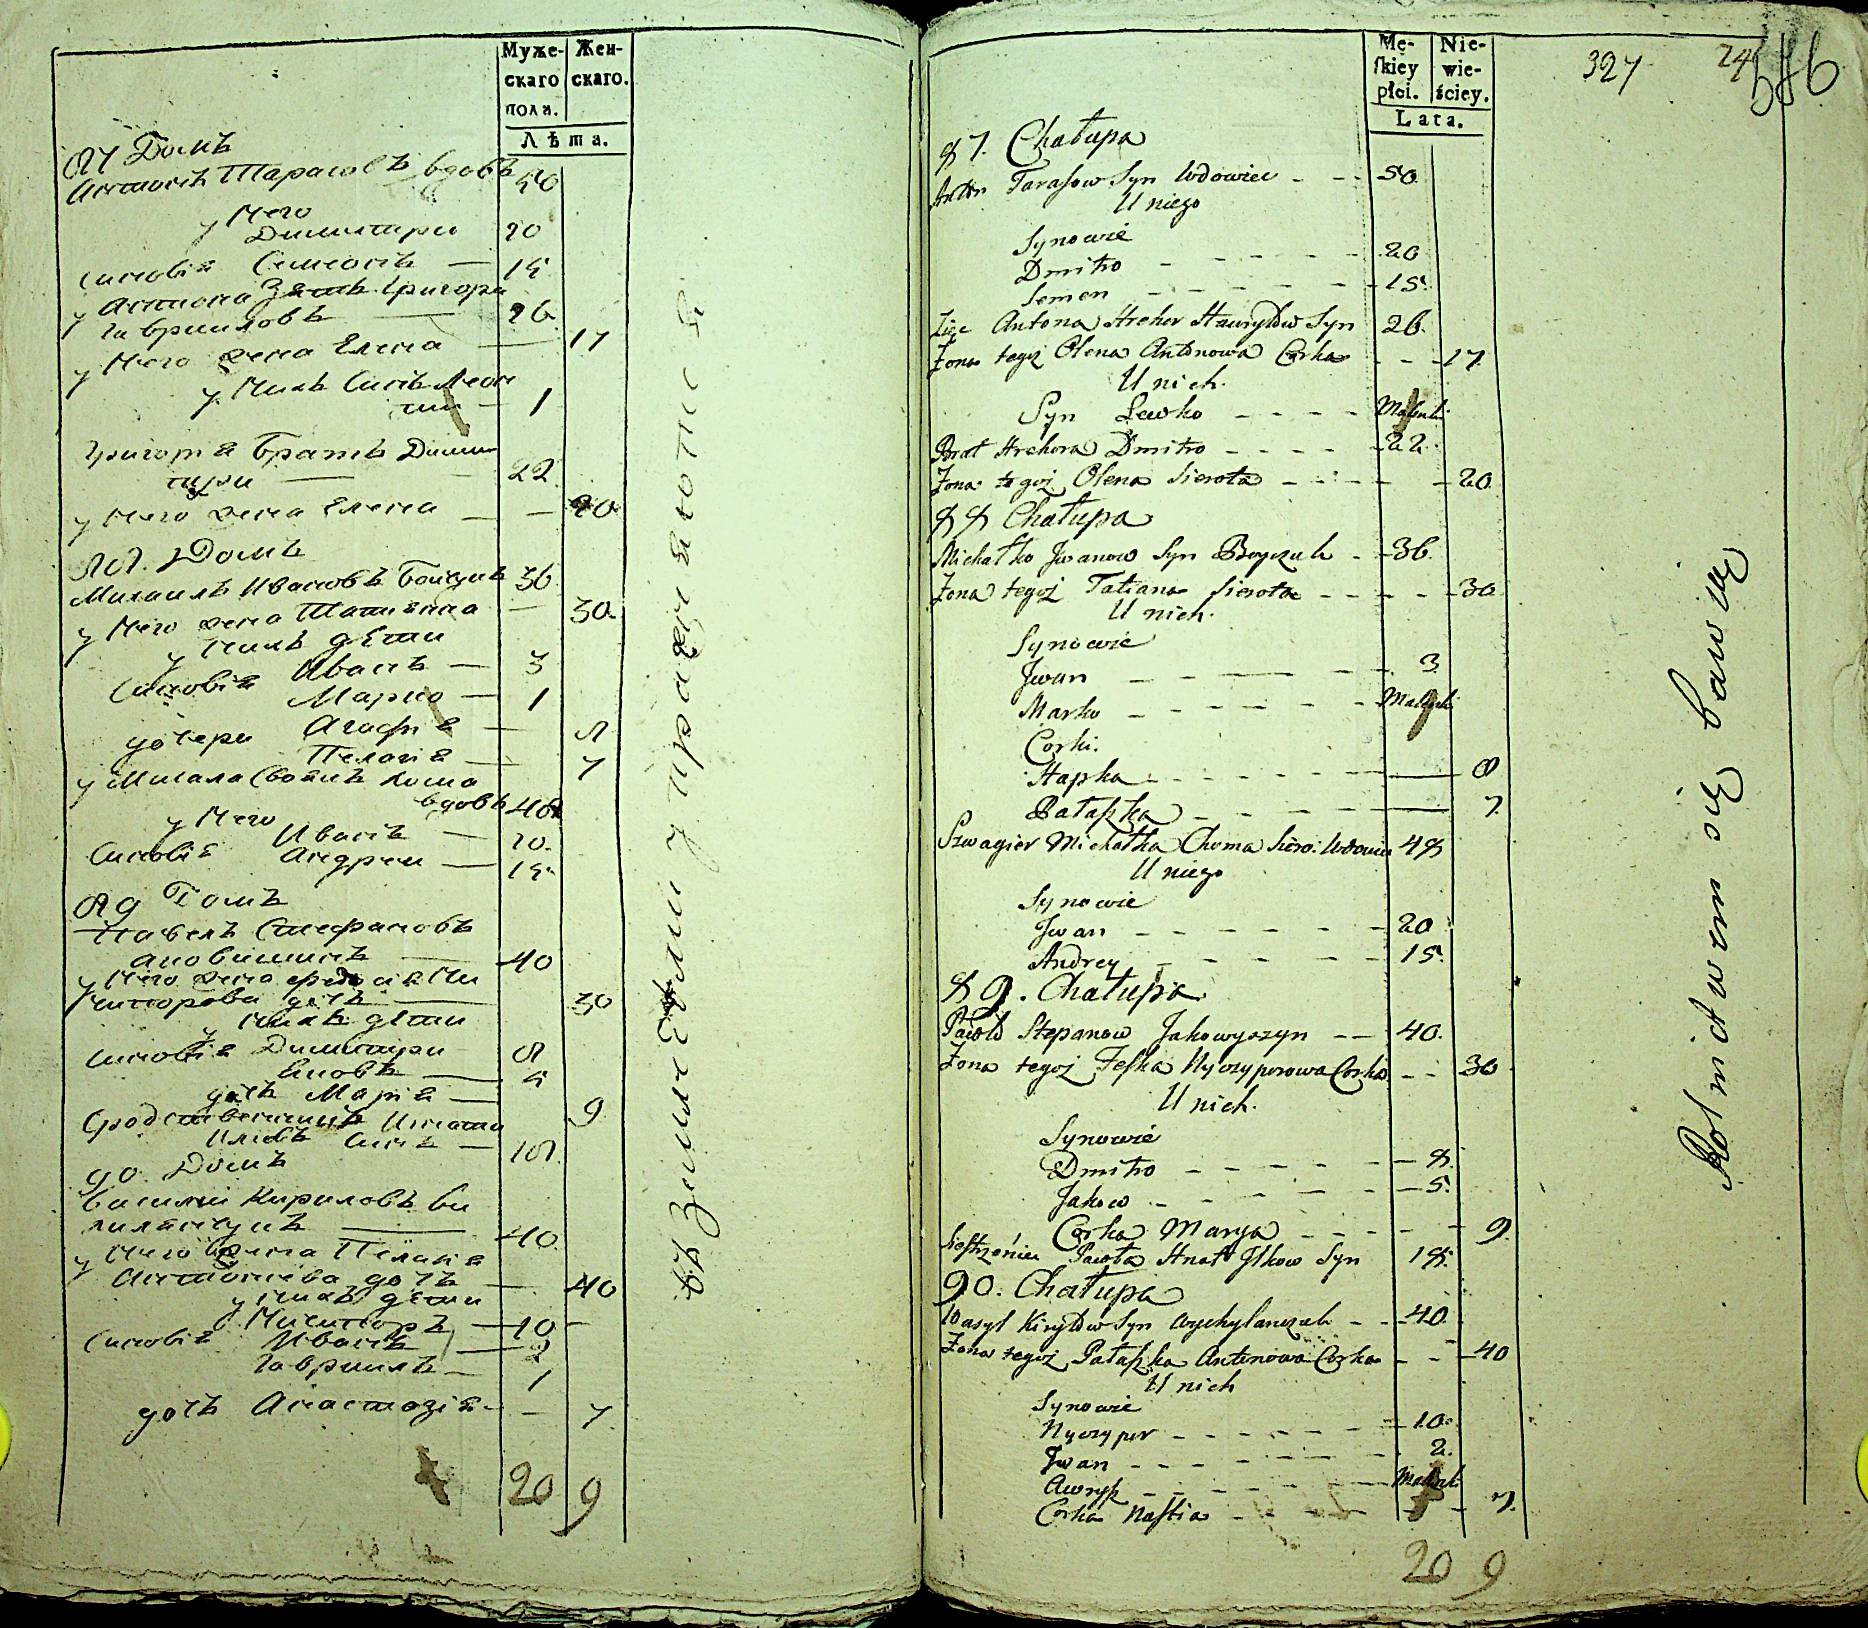 Муже-
скаго
пола.
Жен-
скаго.
Лѣта.
87 Домъ
Антонъ Тарасовъ вдовъ 50
у Него
Димитри 20
Синовія Симеонъ — 15
у Антона Зять Григори
Гавриловъ — 26
у Него жена Елена — 17
у Нихъ Синъ Леон
тий — 1
Григорія Братъ Дими
три — 22
у Него жена Елена — — 20
88. Домъ
Михаилъ Ивановъ Бойчукъ 36
у Него жена Татіяна — 30
у нихъ дѣти
Синовія Иванъ — 3
Марко — 1
дочери Агафія — 8
Пелагія — 7
у Михала Своякъ Хома
вдовъ 48
у Него
Синовія Иванъ — 20.
Андреи — 15
89 Домъ
Павелъ Стефановъ
— 40
у Него жена Ни
чипорова дочь — 30
у нихъ дѣти
Синовія Димитри 8
Яковъ — 5
дочь Марія — 9
Сродственникъ Игнати
Илковъ Синъ — 18
90. Домъ
Василий Кириловъ Ви
хилянчукъ — 40
у Него жена Пелагія
Антоніева дочь — 40
у нихъ дѣти
Ничипоръ — 10 —
Синовія Иванъ — 2
Гавриилъ — 1
дочь Анастазія — — 7
20 9
въ Землѣделіи упражняются
Mę-
skiey
płci.
Nie-
wie-
ściey.
Lata.
327 546
87. Chałupa
Anton Tarasow Syn Wdowiec - - 50
U niego
Synowie
Dmitro - - - - - 20
Semen - - - - - 15.
Zięc Antona Hrehor Hawryłow Syn 26.
Zona tegoż Olena Antonowa Corka - - - 17.
U nich.
Syn Lewko - - - -
Brat Hrehora Dmitro - - - - 22.
Zona tegoż Olena Sierota - - - - 20
88 Chałupa
Michałko Jwanow Syn Boyczuk - - 36.
Zona tegoż Tatiana Sierota - - - - 30
U nich.
Synowie
Jwan - - - - - 3
Marko - - - - -
Corki.
Hapka - - - - - 8
Pałaszka - - - - - 7.
Szwagier Michałka Choma Siero: Wdowiec 48
U niego
Synowie
Jwan - - - - - 20
Andrey - - - - - 15.
89. Chałupa.
Pawło Stepanow Jakowyszyn - - 40.
Zona tegoż Feska Nyczyporowa Corka - - 30
U nich.
Synowie
Dmitro - - - - - 8.
Jakow - - - - - 5.
Corka Marya - - - - - 9.
Siestrzeniec Pawła Hnat Jlkow Syn 18.
90. Chałupa
Wasyl Kiryłow Syn Wychylanczuk - - 40.
Zona tegoż Pałaszka Antonowa Corka - - - 40
U nich
Synowie
Nyczypor - - - - - 10.
Jwan - - - - - 2.
Awryło - - - - -
Corka Nastia - - - - - 7.
20 9
Rolnictwem się bawią